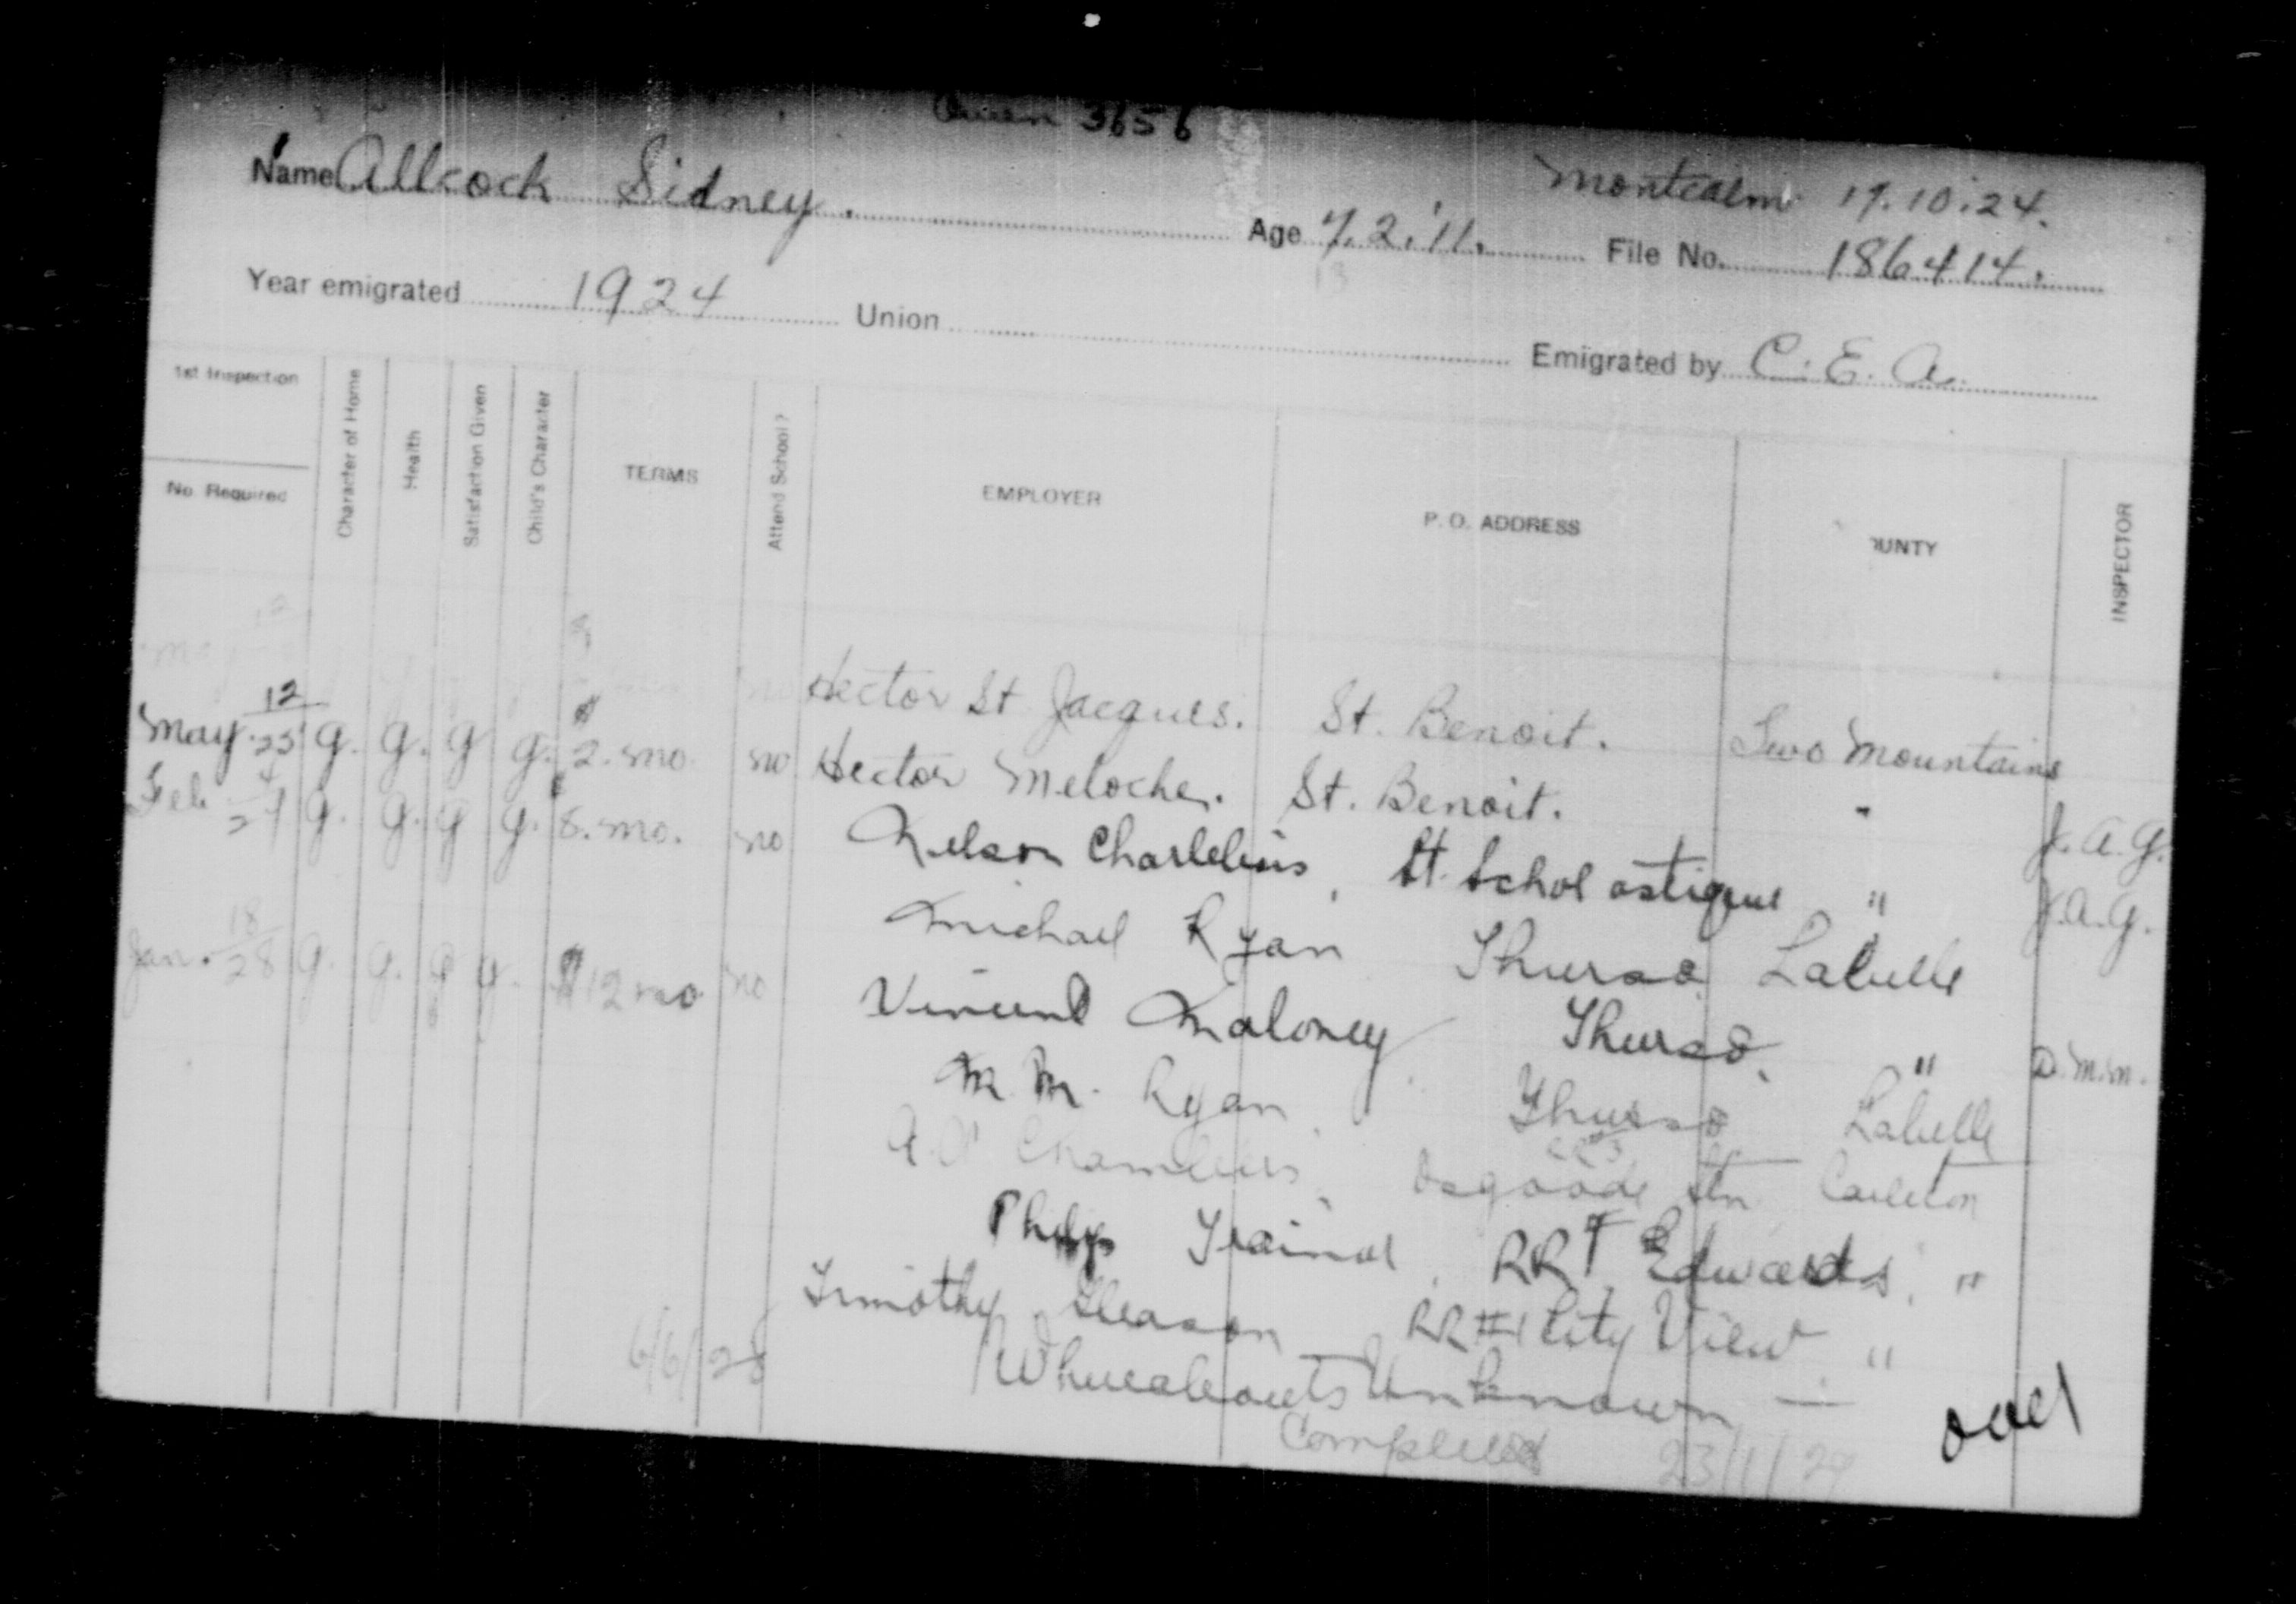 3656
Montcalm 17.10.24.
Name Allcock Sidney. Age 7.2.11. File No. 186414.
13
Year emigrated 1924 Union Emigrated by C. E. A.
1st Inspection
No. Required
Character of Home
Health
Satisfaction Given
Child's Character
TERMS
Attend School?
EMPLOYER
P. O. ADDRESS
OUNTY
INSPECTOR
Hector St Jacques. St. Benoit. Two Mountains
May 12/25 g. g. g g. $2. mo. no Hector Meloche. St. Benoit. " J. A. G.
Feb 4 g. g. g g. 8. mo. no Nelson Charlebois, St. Scholastique " J. A. G.
Michael Ryan Thurso Labelle
Jan. 18/28 g. g. g g. $12 mo no Vincent Maloney Thurso. " D. M. M.
M. M. Ryan Thurso Labelle
Chambers, Osgoode Stn Carleton
Trainor, RR Edwards, "
Timothy Gleason RR#1 City View "
6/6/28 Whereabouts Unknown —
Completed 23/1/29
over